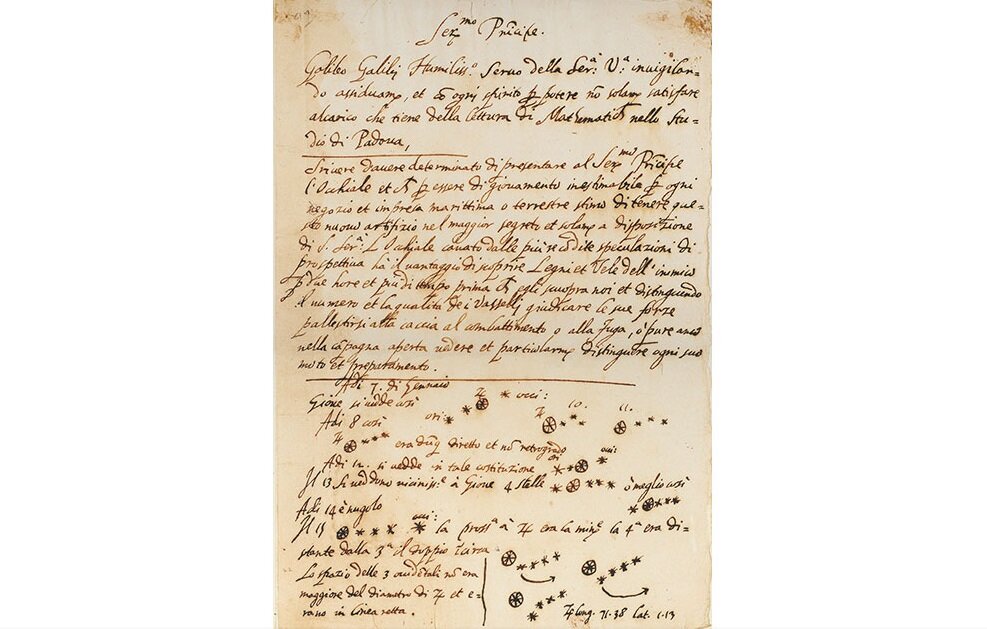 Ser.mo Prĩcipe.
Galileo Galilej Humiliss.o Servo della Ser.a V.a invigilan=
do assiduam.te, et cõ ogni spirito p potere nõ solam.te satisfare
alcarico che tiene della lettura di Mathematich nello Stu=
dio di Padova,
Scrivere davere determinato di presentare al Ser.mo Prĩcipe
l'Occhiale et ch p essere di giovamento inestimabile p ogni
negozio et impresa marittima o terrestre stimo di tenere que=
sto nuovo artifizio nel maggior segreto et solam.te a disposizione
di S. Ser.a L'Occhiale cavato dalle più recõdite speculazioni di
prospettiva hà il vantaggio di scoprire Legni et Vele dell'inimico
p due hore et più di tempo prima ch egli scuopra noi et distinguendo
il numero et la qualità de i Vasselli giudicare le sue forze
pallestirsi alla caccia al combattimento o alla fuga, o pure anco
nella cãpagna aperta vedere et particolarm.te distinguere ogni suo
moto et preparamento.
Adì 7. di Gennaio
Gione si vedde così ori: occi:
Adì 8 così 10. 11.
♃ era dũq diretto et nõ retrogrado
Adì 12. si vedde in tale costituzione ori occi
Il 13 si veddono viciniss.e à Giove 4 stelle ò meglio così
Adì 14 è nugolo
Il 15 occi: la pross.a à ♃ era la min.e la 4.a era di=
stante dalla 3.a il doppio ĩcirca
Lo spazio delle 3 occidẽtali nõ era
maggiore del diametro di ♃ et e=
rano in linea retta.
♃ long. 71.38 Lat. 1.13